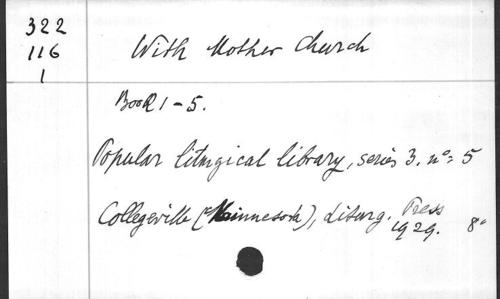 322
116
1
With Mother Church
Book 1-5.
Popular liturgical library, series 3. nº: 5
Collegeville (Minnesota), Liturg. Press
1929. 8º